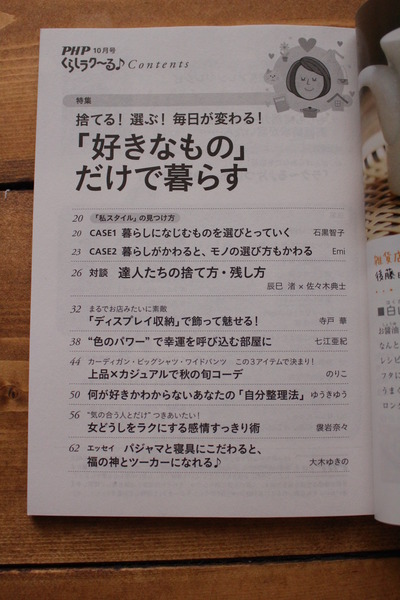 PHP 10月号
くらしラク〜る♪ Contents
特集
捨てる! 選ぶ! 毎日が変わる!
「好きなもの」
だけで暮らす
20 「私スタイル」の見つけ方
20 CASE1 暮らしになじむものを選びとっていく 石黒智子
23 CASE2 暮らしがかわると、モノの選び方もかわる Emi
26 対談 達人たちの捨て方・残し方
辰巳 渚×佐々木典士
32 まるでお店みたいに素敵
「ディスプレイ収納」で飾って魅せる! 寺戸 華
38 “色のパワー”で幸運を呼び込む部屋に 七江亜紀
44 カーディガン・ビッグシャツ・ワイドパンツ この3アイテムで決まり!
上品×カジュアルで秋の旬コーデ のりこ
50 何が好きかわからないあなたの「自分整理法」 ゆうきゆう
56 “気の合う人とだけ”つきあいたい!
女どうしをラクにする感情すっきり術 袰岩奈々
62 エッセイ パジャマと寝具にこだわると、
福の神とツーカーになれる♪ 大木ゆきの
雑貨店
後藤
■白
お醤油
なんと
レシピ
フタに
うまく
ロング